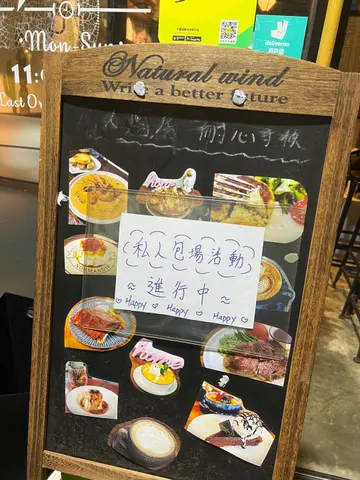 Mon-Sun
11:
Last Or
deliveroo
戶戶送
Natural wind
Write a better future
耐心等候
home
home
(私人包場活動)
~ 進行中 ~
♡ Happy ♡ Happy ♡ Happy ♡